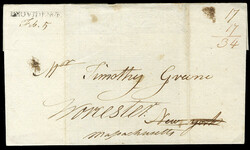 PROVIDENCE
Feb. 5
17
17
34
Mr Timothy Greene
Worcester
New-York
Massachusetts